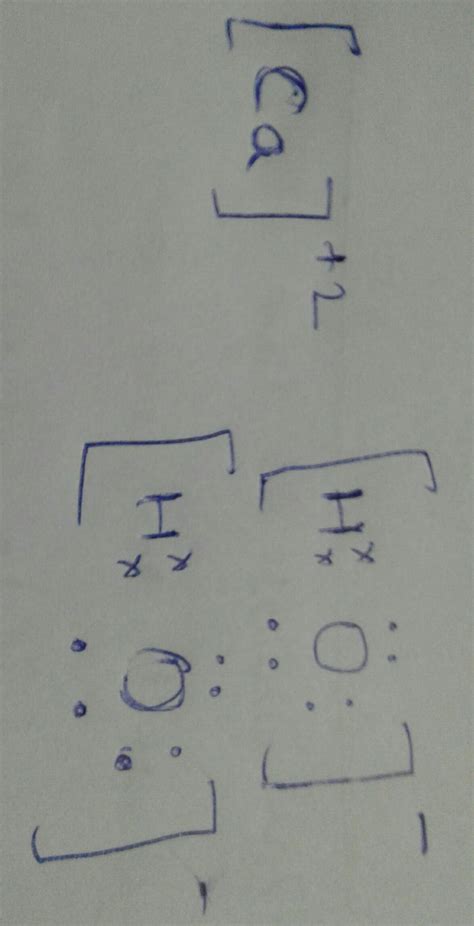 [Ca]+2 [H ×× O]−
[H ×× O]−